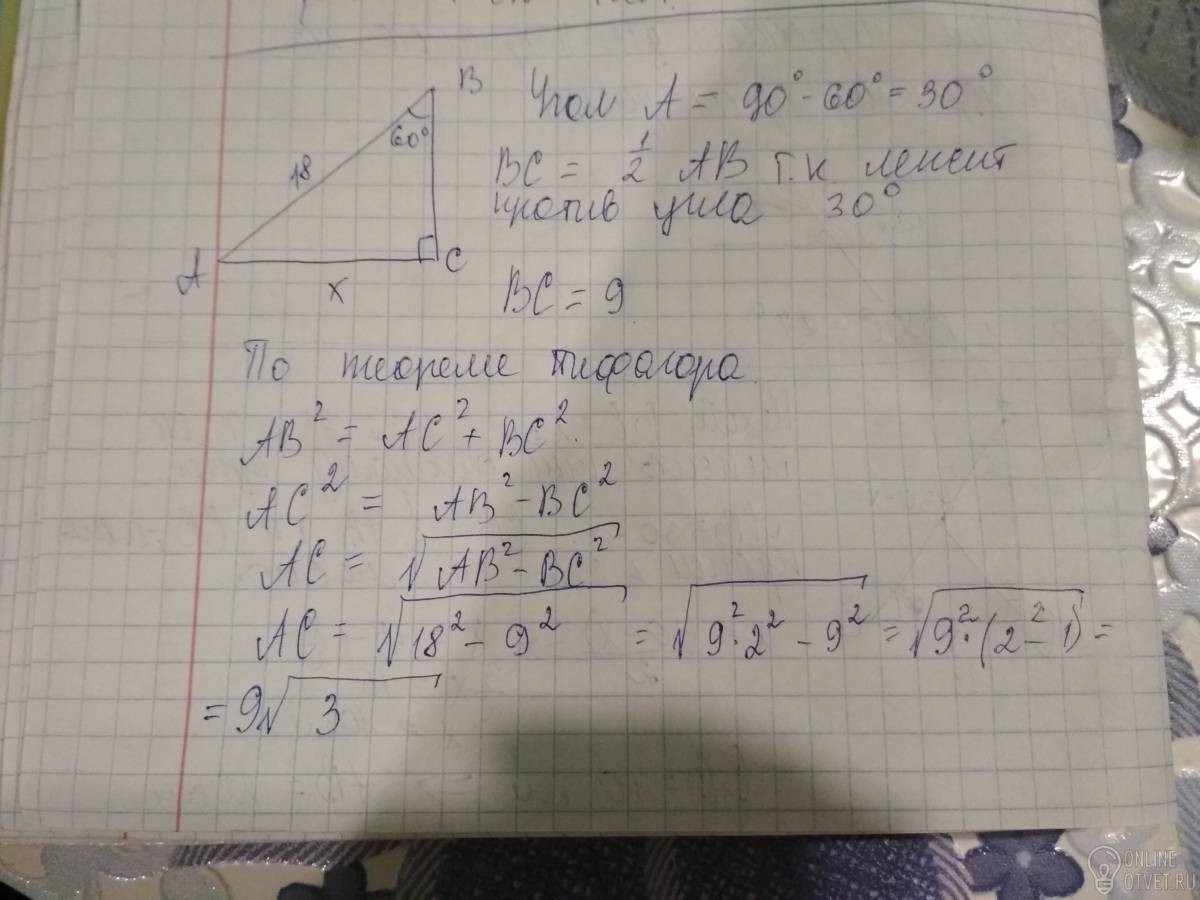 B
60°
18
A
C
x
Угол A = 90° - 60° = 30°
BC = 1/2 AB т.к лежит
против угла 30°
BC = 9
По теореме пифагора
AB² = AC² + BC²
AC² = AB² - BC²
AC = √(AB² - BC²)
AC = √(18² - 9²) = √(9²·2² - 9²) = √(9²·(2² - 1)) =
= 9√3
ONLINE
OTVET.RU